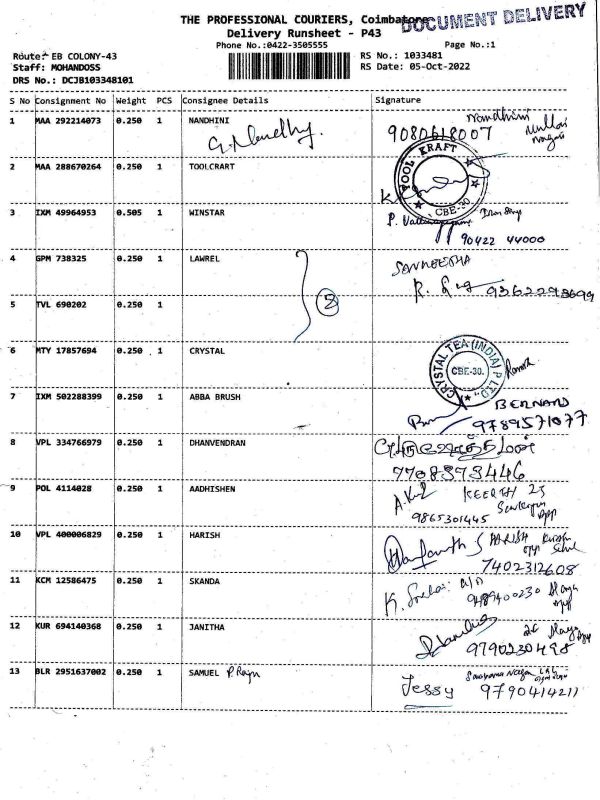 THE PROFESSIONAL COURIERS, Coimbatore
DOCUMENT DELIVERY
Delivery Runsheet - P43
Phone No.:0422-3505555 Page No.:1
Route: EB COLONY-43 RS No.: 1033481
Staff: MOHANDOSS RS Date: 05-Oct-2022
DRS No.: DCJB103348101
S No Consignment No Weight PCS Consignee Details Signature
1 MAA 292214073 0.250 1 NANDHINI Nandhini
9080618007
2 MAA 288670264 0.250 1 TOOLCRART
TOOL KRAFT
CBE-30
3 IXM 49964953 0.505 1 WINSTAR
90422 44000
4 GPM 738325 0.250 1 LAWREL
2
5 TVL 690202 0.250 1
6 MTY 17857694 0.250 1 CRYSTAL
CRYSTAL TEA (INDIA) P LTD.,
CBE-30.
7 IXM 502288399 0.250 1 ABBA BRUSH BERNARD
9789571077
8 VPL 334766979 0.250 1 DHANVENDRAN
7708373446
9 POL 4114028 0.250 1 AADHISHEN
9865301445
10 VPL 400006829 0.250 1 HARISH HARISH
7402312608
11 KCM 12586475 0.250 1 SKANDA
9489400230
12 KUR 694140368 0.250 1 JANITHA
9790230498
13 BLR 2951637002 0.250 1 SAMUEL
Jessy 9790414211